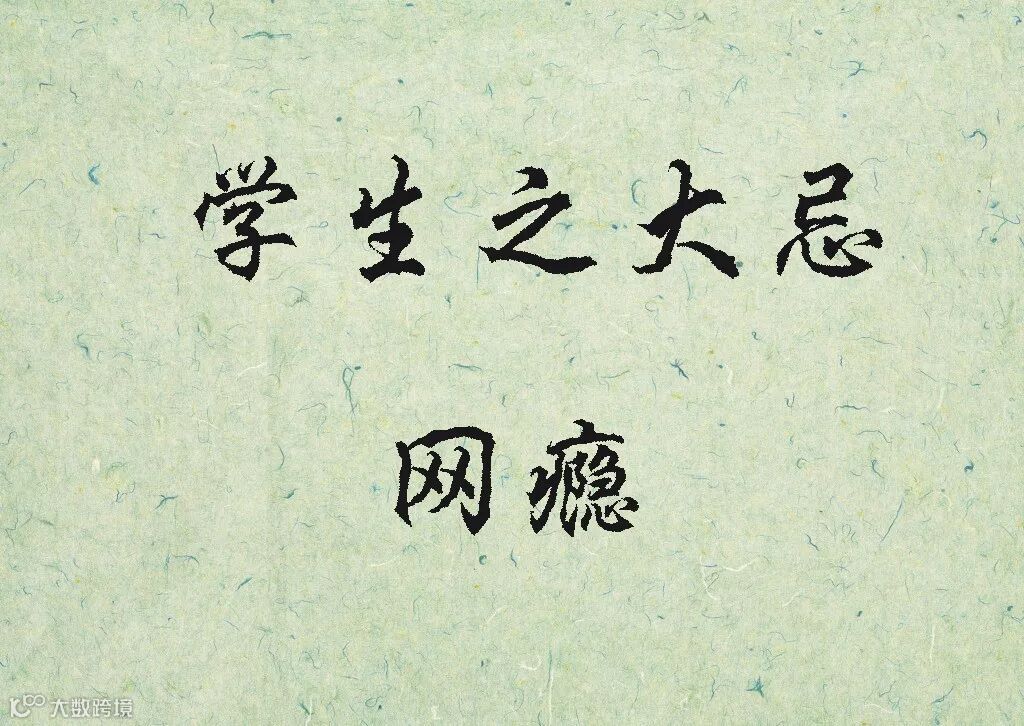 学生之大忌
网瘾
大数跨境